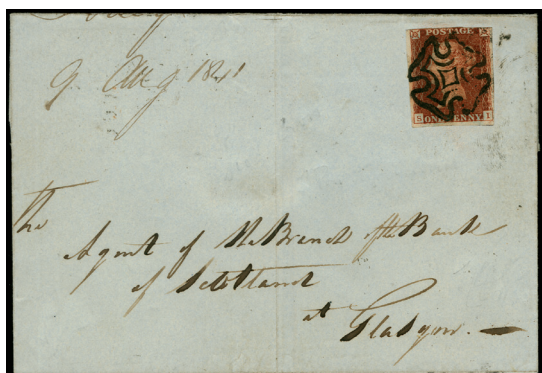 9 Aug 1841
POSTAGE
S ONE PENNY I
The
Agent of the Branch of the Bank
of Scotland
at
Glasgow.